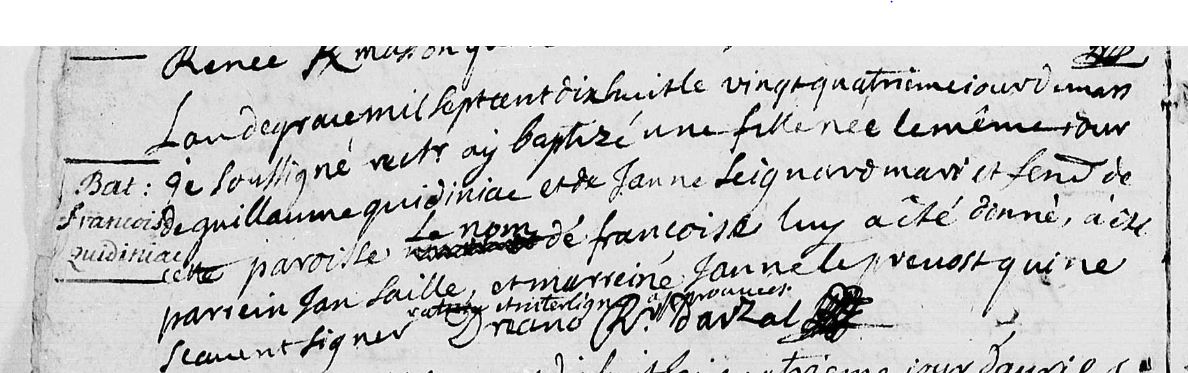 Renée masson
Lan de grace mil sept cent dix huit le vingt quatrieme iour de mars
Bat : Je Soussigné rectr ay baptizé une fille née le même iour
francois quidiniac de guillaume quidiniac et de Janne Seignard mari et fend de
cette paroisse Le nom dé francoise luy a êté donné, a êté
parrein Jan Saille, et marreine Janne le prevost qui ne
Scavent Signer et interligne approuvees
Driano Rr. Darzal